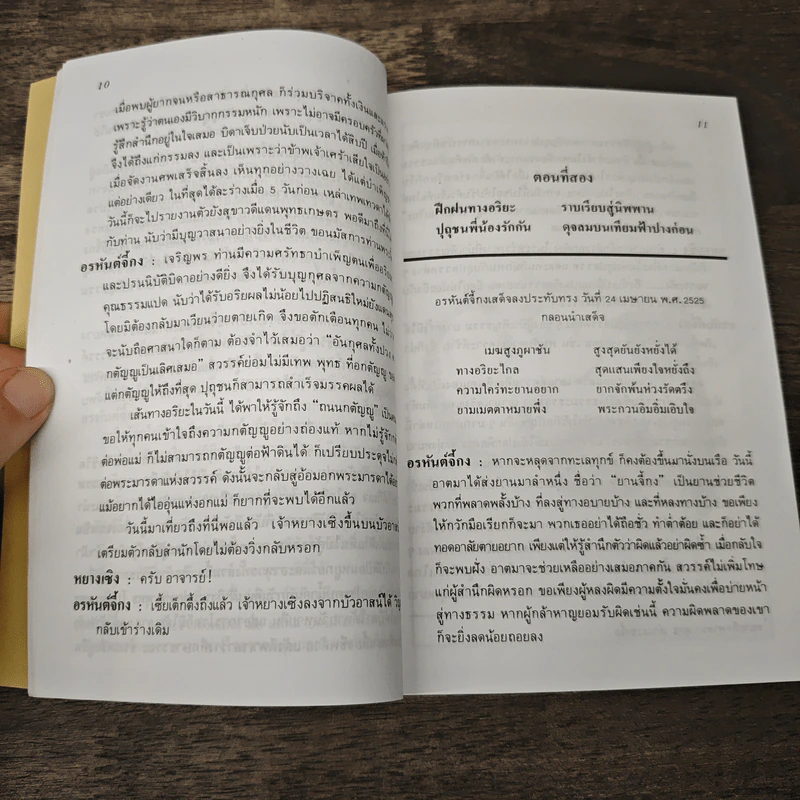 10
เมื่อพบผู้ยากจนหรือสาธารณกุศล ก็ร่วมบริจาคทั้งเงินและ
เพราะรู้ว่าตนเองมีวิบากกรรมหนัก เพราะไม่อาจมีครอบครัว
รู้สึกสำนึกอยู่ในใจเสมอ บิดาเจ็บป่วยนับเป็นเวลาได้สิบปี
จึงได้ถึงแก่กรรมลง และเป็นเพราะว่าข้าพเจ้าเศร้าเสียใจ
เมื่อจัดงานศพเสร็จสิ้นลง เห็นทุกอย่างวางเฉย ได้แต่บำเพ็ญ
แต่อย่างเดียว ในที่สุดได้ละร่างเมื่อ 5 วันก่อน เหล่าเทพเทวดา
วันนี้ก็จะไปรายงานตัวยังสุขาวดีแดนพุทธเกษตร พอดีมาถึง
กับท่าน นับว่ามีบุญวาสนาอย่างยิ่งในชีวิต ขอนมัสการท่าน
อรหันต์จี้กง : เจริญพร ท่านมีความศรัทธาบำเพ็ญตนเพื่อ
และปรนนิบัติบิดาอย่างดียิ่ง จึงได้รับบุญกุศลจากความกตัญญู
คุณธรรมแปด นับว่าได้รับอริยผลไม่น้อยไปปฏิสนธิใหม่ยังแดน
โดยมิต้องกลับมาเวียนว่ายตายเกิด จึงขอตักเตือนทุกคน
จะนับถือศาสนาใดก็ตาม ต้องจำไว้เสมอว่า “อันกุศลทั้งปวง
กตัญญูเป็นเลิศเสมอ” สวรรค์ย่อมไม่มีเทพ พุทธ ที่อกตัญญู
แต่กตัญญูให้ถึงที่สุด ปุถุชนก็สามารถสำเร็จมรรคผลได้
เส้นทางอริยะในวันนี้ ได้พาให้รู้จักถึง “ถนนกตัญญู”
ขอให้ทุกคนเข้าใจถึงความกตัญญูอย่างถ่องแท้ หากไม่รู้จัก
ต่อพ่อแม่ ก็ไม่สามารถกตัญญูต่อฟ้าดินได้ ก็เปรียบประดุจ
ต่อพระมารดาแห่งสวรรค์ ดังนั้นจะกลับสู่อ้อมอกพระมารดาได้
แม้อยากได้ไออุ่นแห่งอกแม่ ก็ยากที่จะพบได้อีกแล้ว
วันนี้มาเที่ยวถึงที่นี่พอแล้ว เจ้าหยางเซิงขึ้นบนบัว
เตรียมตัวกลับสำนักโดยไม่ต้องวิ่งกลับหรอก
หยางเซิง : ครับ อาจารย์!
อรหันต์จี้กง : เซี้ยเต็กตึ้งถึงแล้ว เจ้าหยางเซิงลงจากบัวอาสน์ได้
กลับเข้าร่างเดิม
11
ตอนที่สอง
ฝึกฝนทางอริยะ ราบเรียบสู่นิพพาน
ปุถุชนพี่น้องรักกัน ดุจลมบนเทียมฟ้าปางก่อน
อรหันต์จี้กงเสด็จลงประทับทรง วันที่ 24 เมษายน พ.ศ. 2525
กลอนนำเสด็จ
เมฆสูงภูผาชัน สูงสุดยันยังหยั่งได้
ทางอริยะไกล สุดแสนเพียงใจหยั่งถึง
ความใคร่ทะยานอยาก ยากจักพ้นห่วงรัดตรึง
ยามเมตตาหมายพึ่ง พระกวนอิมอิ่มเอิบใจ
อรหันต์จี้กง : หากจะหลุดจากทะเลทุกข์ ก็คงต้องขึ้นมานั่งบนเรือ วันนี้
อาตมาได้ส่งยานมาลำหนึ่ง ชื่อว่า “ยานจี้กง” เป็นยานช่วยชีวิต
พวกที่พลาดพลั้งบ้าง ที่ลงสู่ทางอบายบ้าง และที่หลงทางบ้าง ขอเพียง
ให้กวักมือเรียกก็จะมา พวกเธออย่าได้ถือชั่ว ทำต่ำต้อย และก็อย่าได้
ทอดอาลัยตายอยาก เพียงแต่ให้รู้สำนึกตัวว่าผิดแล้วอย่าผิดซ้ำ เมื่อกลับใจ
ก็จะพบฝั่ง อาตมาจะช่วยเหลืออย่างเสมอภาคกัน สวรรค์ไม่เพิ่มโทษ
แก่ผู้สำนึกผิดหรอก ขอเพียงผู้หลงผิดมีความตั้งใจมั่นคงเพื่อบ่ายหน้า
สู่ทางธรรม หากผู้กล้าหาญยอมรับผิดเช่นนี้ ความผิดพลาดของเขา
ก็จะยิ่งลดน้อยถอยลง